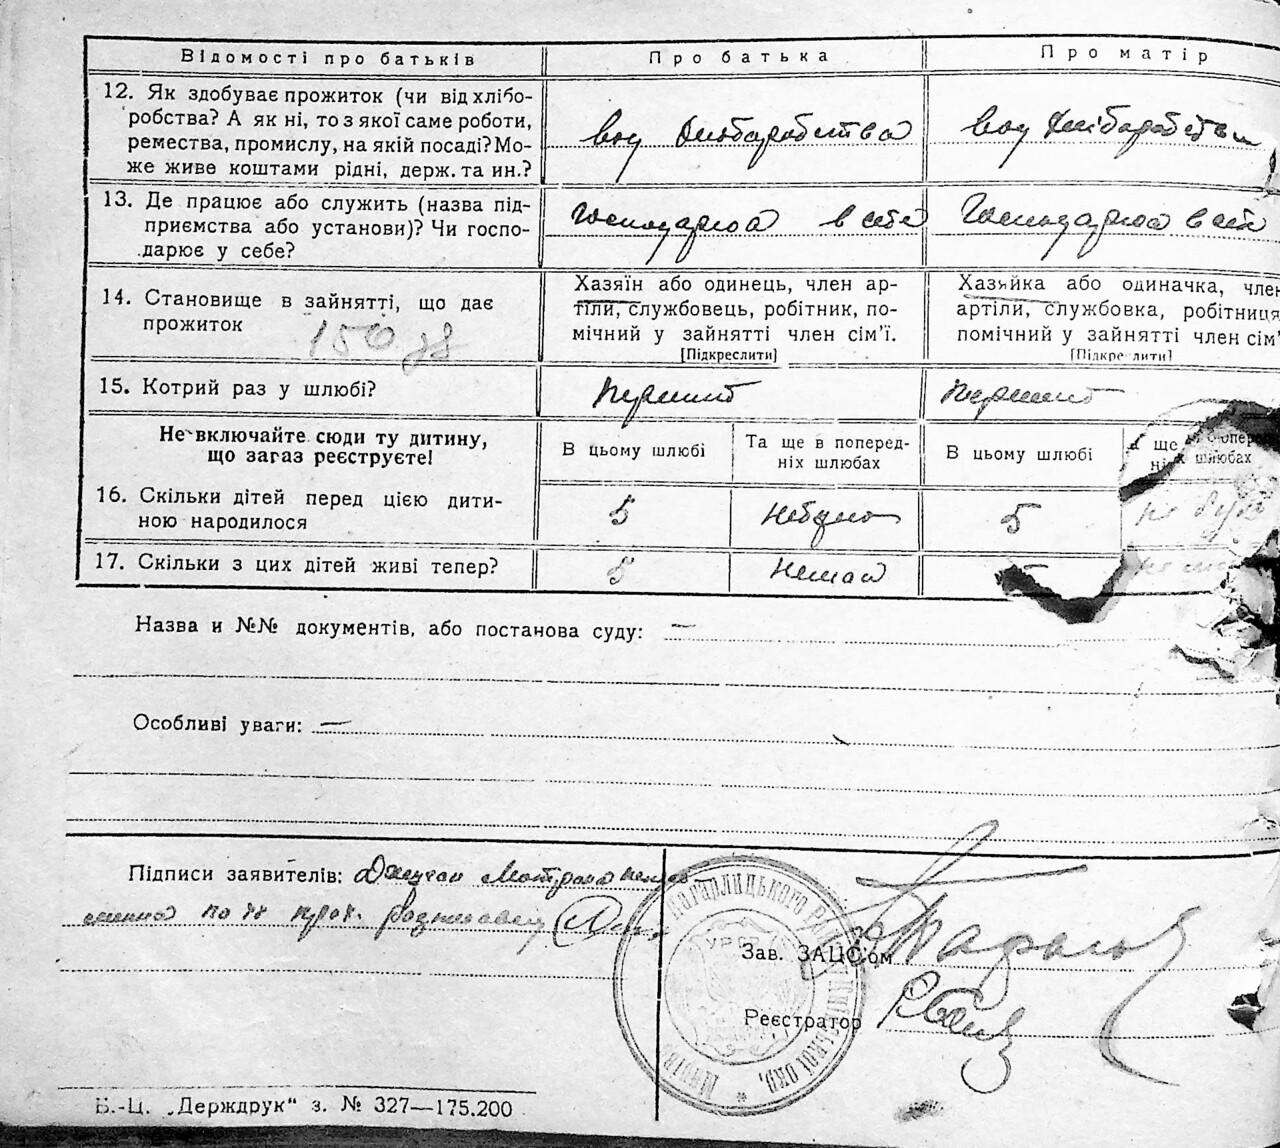 Відомості про батьків
Про батька
Про матір
12. Як здобуває прожиток (чи від хлібо-
робства? А як ні, то з якої саме роботи,
ремества, промислу, на якій посаді? Мо-
же живе коштами рідні, держ. та ин.?
хліборобства
хліборобства
13. Де працює або служить (назва під-
приємства або установи)? Чи госпо-
дарює у себе?
Господарює в себе
Господарює в себе
14. Становище в зайнятті, що дає
прожиток
150
Хазяїн або одинець, член ар-
тіли, службовець, робітник, по-
мічний у зайнятті член сім'ї.
[Підкреслити]
Хазяйка або одиначка, член
артіли, службовка, робітниця
помічний у зайнятті член сім'
[Підкре лити]
15. Котрий раз у шлюбі?
перший
перший
Не включайте сюди ту дитину,
що загаз реєструєте!
В цьому шлюбі
Та ще в поперед-
ніх шлюбах
В цьому шлюбі
ще
шлюбах
16. Скільки дітей перед цією дити-
ною народилося
5
Небуло
5
не було
17. Скільки з цих дітей живі тепер?
5
Немає
Назва и №№ документів, або постанова суду: —
Особливі уваги: —
Підписи заявителів:
Мотрона
по її
Кагарлицького
Київської окр.
УРСР
Зав. ЗАЦС'ом
Реєстратор
В.-Ц. „Держдрук“ з. № 327—175.200